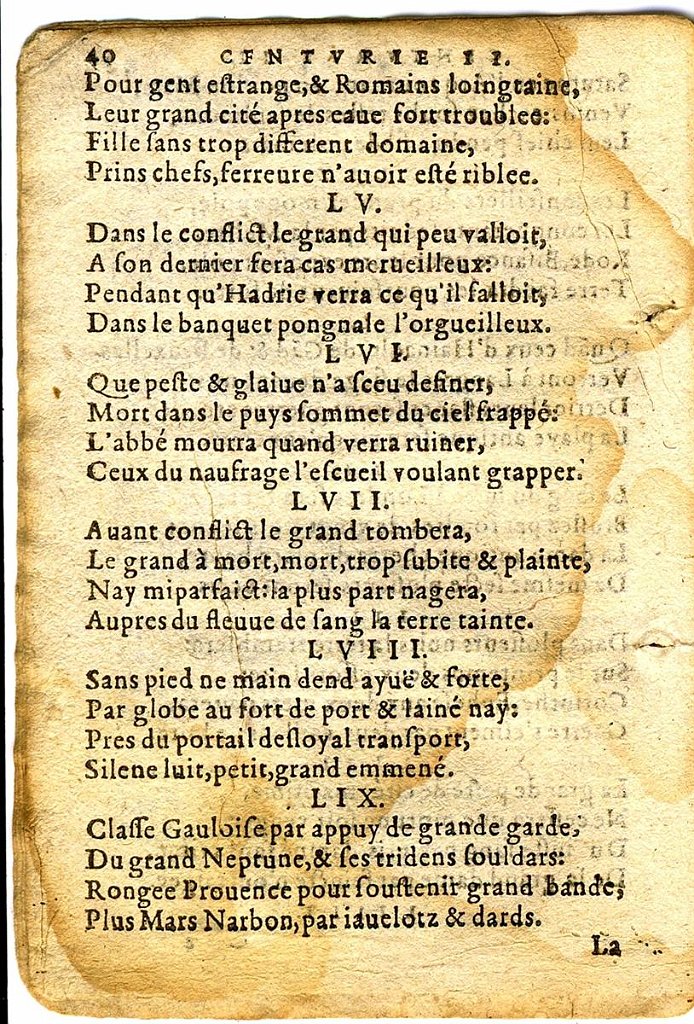 40 CENTVRIE II.
Pour gent eſtrange,& Romains loingtaine,
Leur grand cité apres eaue fort troublee:
Fille ſans trop different domaine,
Prins chefs,ferreure n'auoir eſté riblee.
LV.
Dans le conflict le grand qui peu valloit,
A ſon dernier fera cas merueilleux:
Pendant qu'Hadrie verra ce qu'il falloit,
Dans le banquet pongnale l'orgueilleux.
LVI.
Que peſte & glaiue n'a ſceu definer,
Mort dans le puys ſommet du ciel frappé:
L'abbé mourra quand verra ruiner,
Ceux du naufrage l'eſcueil voulant grapper.
LVII.
Auant conflict le grand tombera,
Le grand à mort,mort,trop ſubite & plainte,
Nay miparfaict:la plus part nagera,
Aupres du fleuue de ſang la terre tainte.
LVIII.
Sans pied ne main dend ayuë & forte,
Par globe au fort de port & lainé nay:
Pres du portail deſloyal tranſport,
Silene luit,petit,grand emmené.
LIX.
Claſſe Gauloiſe par appuy de grande garde,
Du grand Neptune,& ſes tridens ſouldars:
Rongee Prouence pour ſouſtenir grand bande,
Plus Mars Narbon,par iauelotz & dards.
La